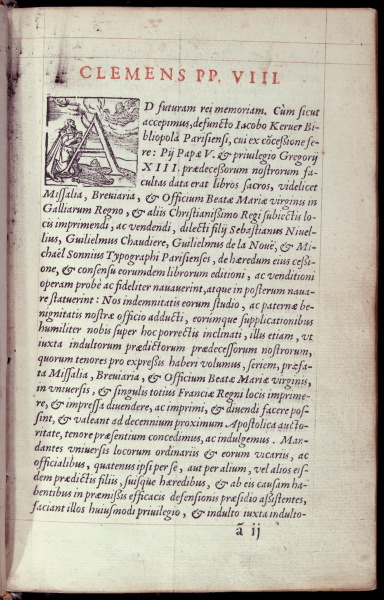 CLEMENS PP. VIII.
AD futuram rei memoriam. Cùm sicut
accepimus, defuncto Iacobo Keruer Bi-
bliopola Parisiensi, cui ex cõcessione fe-
re: Pij Papæ V. & priuilegio Gregorij
XIII. prædecessorum nostrorum fa-
cultas data erat libros sacros, videlicet
Missalia, Breuiaria, & Officium Beatæ Mariæ virginis in
Galliarum Regno, & aliis Christianissimo Regi subiectis lo-
cis imprimendi, ac vendendi, dilecti filij Sebastianus Niuel-
lius, Guilielmus Chaudiere, Guilielmus de la Nouë, & Mi-
chaël Sonnius Typographi Parisienses, de hæredum eius cessi-
one, & consensu eorumdem librorum editioni, ac venditioni
operam probè ac fideliter nauauerint, atque in posterum naua-
re statuerint: Nos indemnitati eorum studio, ac paternæ be-
nignitatis nostræ officio adducti, eorúmque supplicationibus
humiliter nobis super hoc porrectis inclinati, illis etiam, vt
iuxta indultorum prædictorum prædecessorum nostrorum,
quorum tenores pro expressis haberi volumus, seriem, præfa-
ta Missalia, Breuiaria, & Officium Beatæ Mariæ virginis,
in vniuersis, & singulis totius Franciæ Regni locis imprime-
re, & impressa diuendere, ac imprimi, & diuendi facere pos-
sint, & valeant ad decennium proximum Apostolica aucto-
ritate, tenore præsentium concedimus, ac indulgemus. Man-
dantes vniuersis locorum ordinariis & eorum vicariis, ac
officialibus, quatenus ipsi per se, aut per alium, vel alios eis-
dem prædictis filiis, suísque hæredibus, & ab eis causam ha-
bentibus in præmissis efficacis defensionis præsidio assistentes,
faciant illos huiusmodi priuilegio, & indulto iuxta indulto-
ã ij